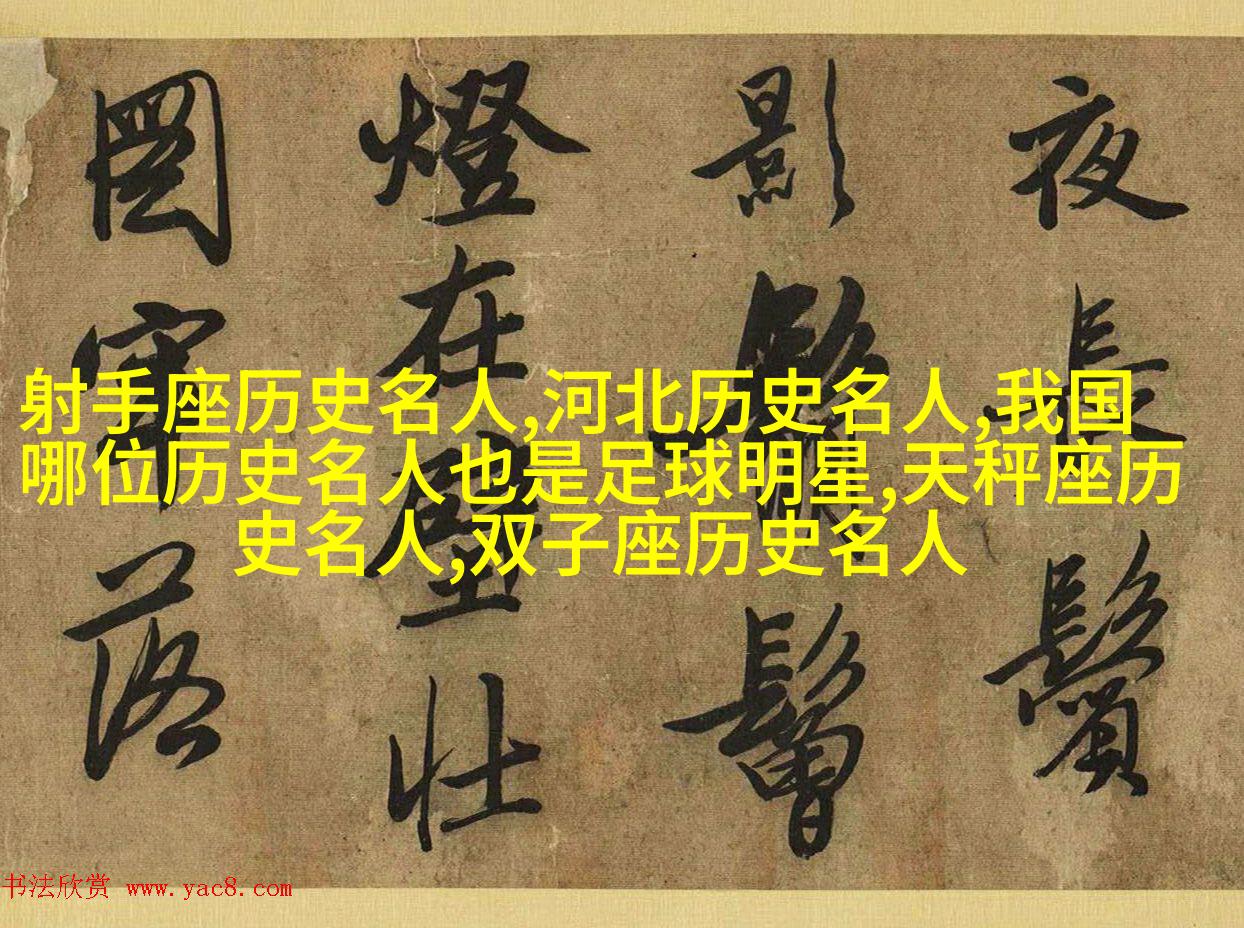 夜長鬢
影鬅鬙
燈在壁壯
圖牢落
射手座历史名人,河北历史名人,我国
哪位历史名人也是足球明星,天秤座历
史名人,双子座历史名人
书法欣赏 www.yac8.com